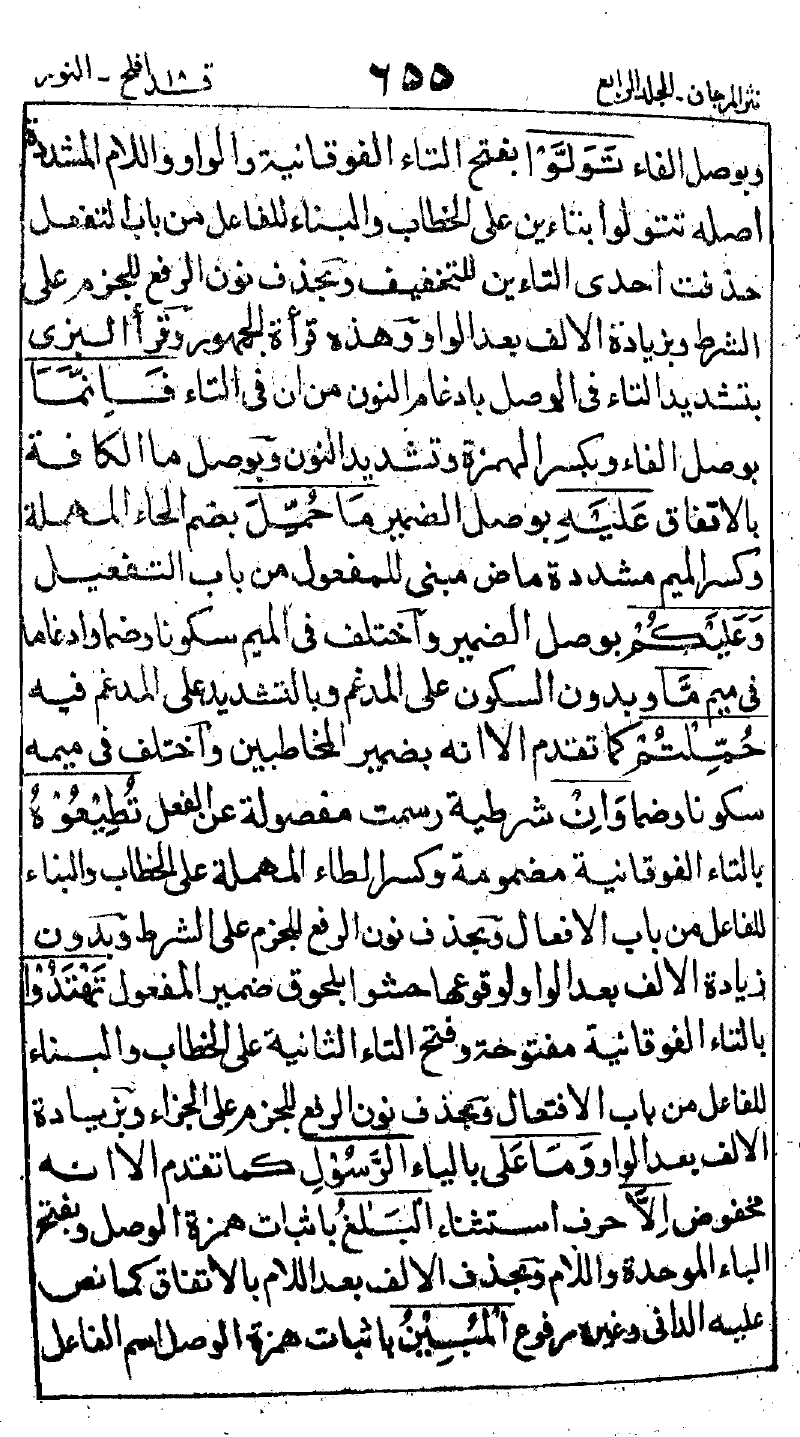 نثر المرجان ـ المجلد الرابع ٦٥٥ قد افلح ١٨ ـ النور
وبوصل الفاء تَوَلَّوْا بفتح التاء الفوقانية والواو واللام المشددة
اصله تتولوا بتاءين على الخطاب والبناء للفاعل من باب التفعل
حذفت احدى التاءين للتخفيف وبحذف نون الرفع للجزم على
الشرط وبزيادة الالف بعد الواو وهذه قرأة الجمهور وقرأ البزى
بتشديد التاء فى الوصل بادغام النون من ان فى التاء فَاِنَّمَا
بوصل الفاء وبكسر الهمزة وتشديد النون وبوصل ما الكافة
بالاتفاق عَلَيْهِ بوصل الضمير مَا حُمِّلَ بضم الحاء المهملة
وكسر الميم مشددة ماض مبنى للمفعول من باب التفعيل
وَعَلَيْكُمْ بوصل الضمير واختلف فى الميم سكونا وضما وادغاما
فى ميم مَّا وبدون السكون على المدغم وبالتشديد على المدغم فيه
حُمِّلْتُمْ كما تقدم الا انه بضمير المخاطبين واختلف فى ميمه
سكونا وضما وَاِنْ شرطية رسمت مفصولة عن الفعل تُطِيْعُوْهُ
بالتاء الفوقانية مضمومة وكسر الطاء المهملة على الخطاب والبناء
للفاعل من باب الافعال وبحذف نون الرفع للجزم على الشرط وبدون
زيادة الالف بعد الواو لوقوعها حشوا بلحوق ضمير المفعول تَهْتَدُوْا
بالتاء الفوقانية مفتوحة وفتح التاء الثانية على الخطاب والبناء
للفاعل من باب الافتعال وبحذف نون الرفع للجزم على الجزاء وبزيادة
الالف بعد الواو وَمَا عَلَى بالياء الرَّسُوْلِ كما تقدم الا انه
مخفوض اِلَّا حرف استثناء الْبَلٰغُ باثبات همزة الوصل وبفتح
الباء الموحدة واللام وبحذف الالف بعد اللام بالاتفاق كما نص
عليه الدانى وغيره مرفوع الْمُبِيْنُ باثبات همزة الوصل اسم الفاعل